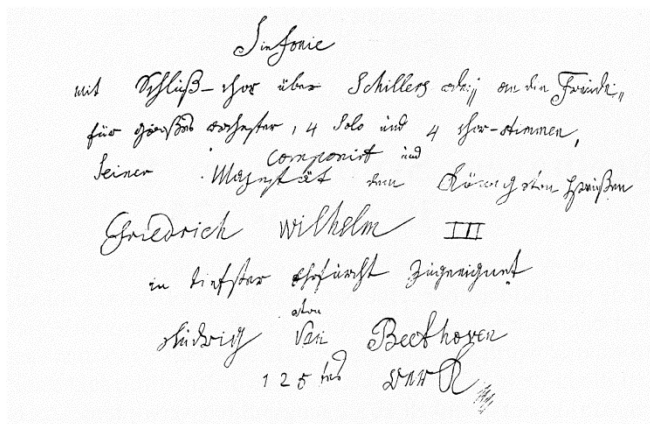 Sinfonie
mit Schluß-chor über Schillers ode: „an die Freude“
für großes orchester, 4 Solo und 4 chor-stimmen,
componirt und
Seiner Majestät dem König von Preußen
Friedrich Wilhelm III
in tiefster ehrfurcht zugeeignet
von
Ludwig van Beethoven
125tes Werk